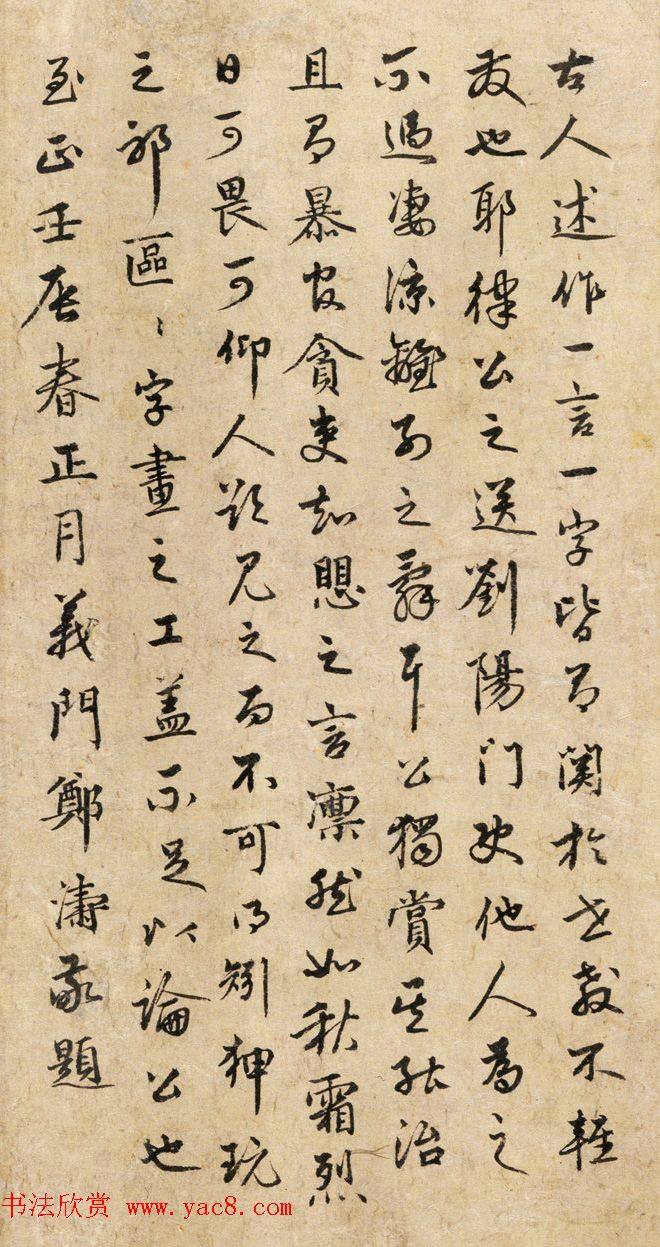 古人述作一言一字皆有関於世教不輕
發也耶律公之送劉陽门使他人為之
不過凄涼離別之辭耳公獨賞其能治
且有暴官貪吏知愳之言凛然如秋霜烈
日可畏可仰人欲见之而不可得矧狎玩
之邪區〻字畫之工盖不足以論公也
至正壬辰春正月義門鄭濤敬題
书法欣赏 www.yac8.com